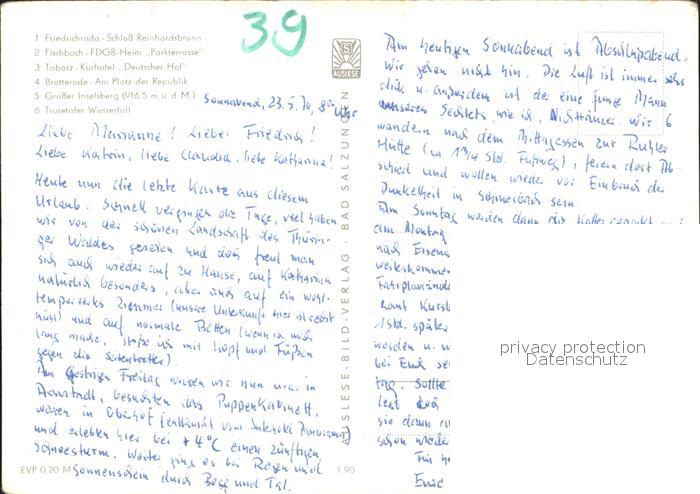 39
1 Friedrichroda - Schloß Reinhardsbrunn
2 Fischbach - FDGB-Heim „Parkterrasse"
3 Tabarz - Kurhotel „Deutscher Hof"
4 Brotterode - Am Platz der Republik
5 Großer Inselsberg (916,5 m ü. d. M.)
6 Trusetaler Wasserfall
AUSLESE
AUSLESE-BILD-VERLAG · BAD SALZUNGEN
Sonnabend, 23.5.70, 8°° Uhr
Liebe Marianne! Lieber Friedrich!
Liebe Katrin, liebe Claudia, liebe Katharina!
Heute nun die letzte Karte aus diesem
Urlaub. Schnell vergingen die Tage, viel haben
wir von der schönen Landschaft des Thürin-
ger Waldes gesehen und doch freut man
sich auch wieder auf zu Hause, auf Katharina
natürlich besonders, aber auch auf ein wohl-
temperiertes Zimmer (unsere Unterkunft hier ist
kühl) und auf normale Betten (wenn ich mich
lang mache, stoße ich mit Kopf und Füßen
gegen die
Am gestrigen Freitag waren wir nun u.a. in
Arnstadt, besuchten das Puppenkabinett,
waren in Oberhof (enttäuscht vom Interhotel Panorama)
und erlebten hier bei +4°C einen zünftigen
Schneesturm. Weiter ging es bei Regen und
Sonnenschein durch Berg und Tal.
EVP 0,20 M
I 90
Am heutigen Sonnabend ist Abschlußabend,
wir gehen nicht hin. Die Luft ist immer sehr
dick u. außerdem ist der eine junge Mann
unseres Sechsers wie ich, Nichttänzer. Wir 6
wandern nach dem Mittagessen zur Ruhler
Hütte (ca. 1 3/4 Std. Fußweg), feiern dort Ab-
schied und wollen wieder vor Einbruch der
Dunkelheit in Schmerbach sein.
Am Sonntag werden dann die Koffer gepackt
am Montag
nach Eisena
weiterkommen
Fahrplanände
samt Kurs
1 Std. später
werden u. w
bei Euch se
tag. Sollte
doch
sie dann
schon wieder
Für h
Eure
privacy protection
Datenschutz